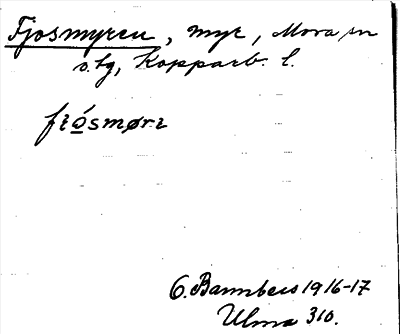 Fjosmyren, myr, Mora sn
o. tg, Kopparb. l.
fiósmør.ı
O. Bannbers 1916-17
Ulma 310.